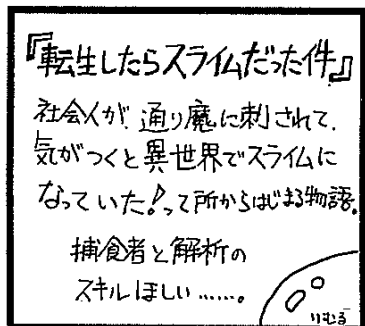 『転生したらスライムだった件』
社会人が、通り魔に刺されて、
気がつくと異世界でスライムに
なっていた!って所からはじまる物語。
捕食者と解析の
スキルほしい……。
りむる